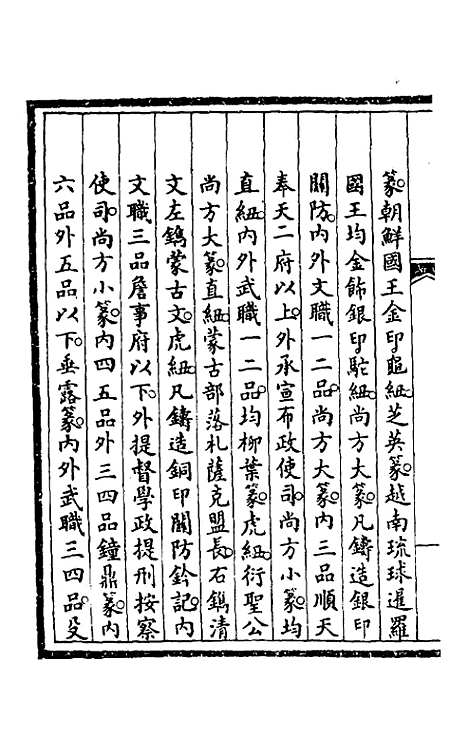 篆。朝鮮國王金印龜紐。芝英篆。越南琉球暹羅
國王均金飾銀印駝紐。尚方大篆。凡鑄造銀印
關防。內外文職一二品尚方大篆。內三品順天
奉天二府以上。外承宣布政使司。尚方小篆。均
直紐。內外武職一二品。均柳葉篆。虎紐。衍聖公
尚方大篆。直紐。蒙古部落札薩克盟長。右鐫清
文左鐫蒙古文。虎紐。凡鑄造銅印關防鈐記。內
文職三品詹事府以下。外提督學政提刑按察
使司。尚方小篆。內四五品外三四品鐘鼎篆。內
六品外五品以下。垂露篆。內外武職三四品。及